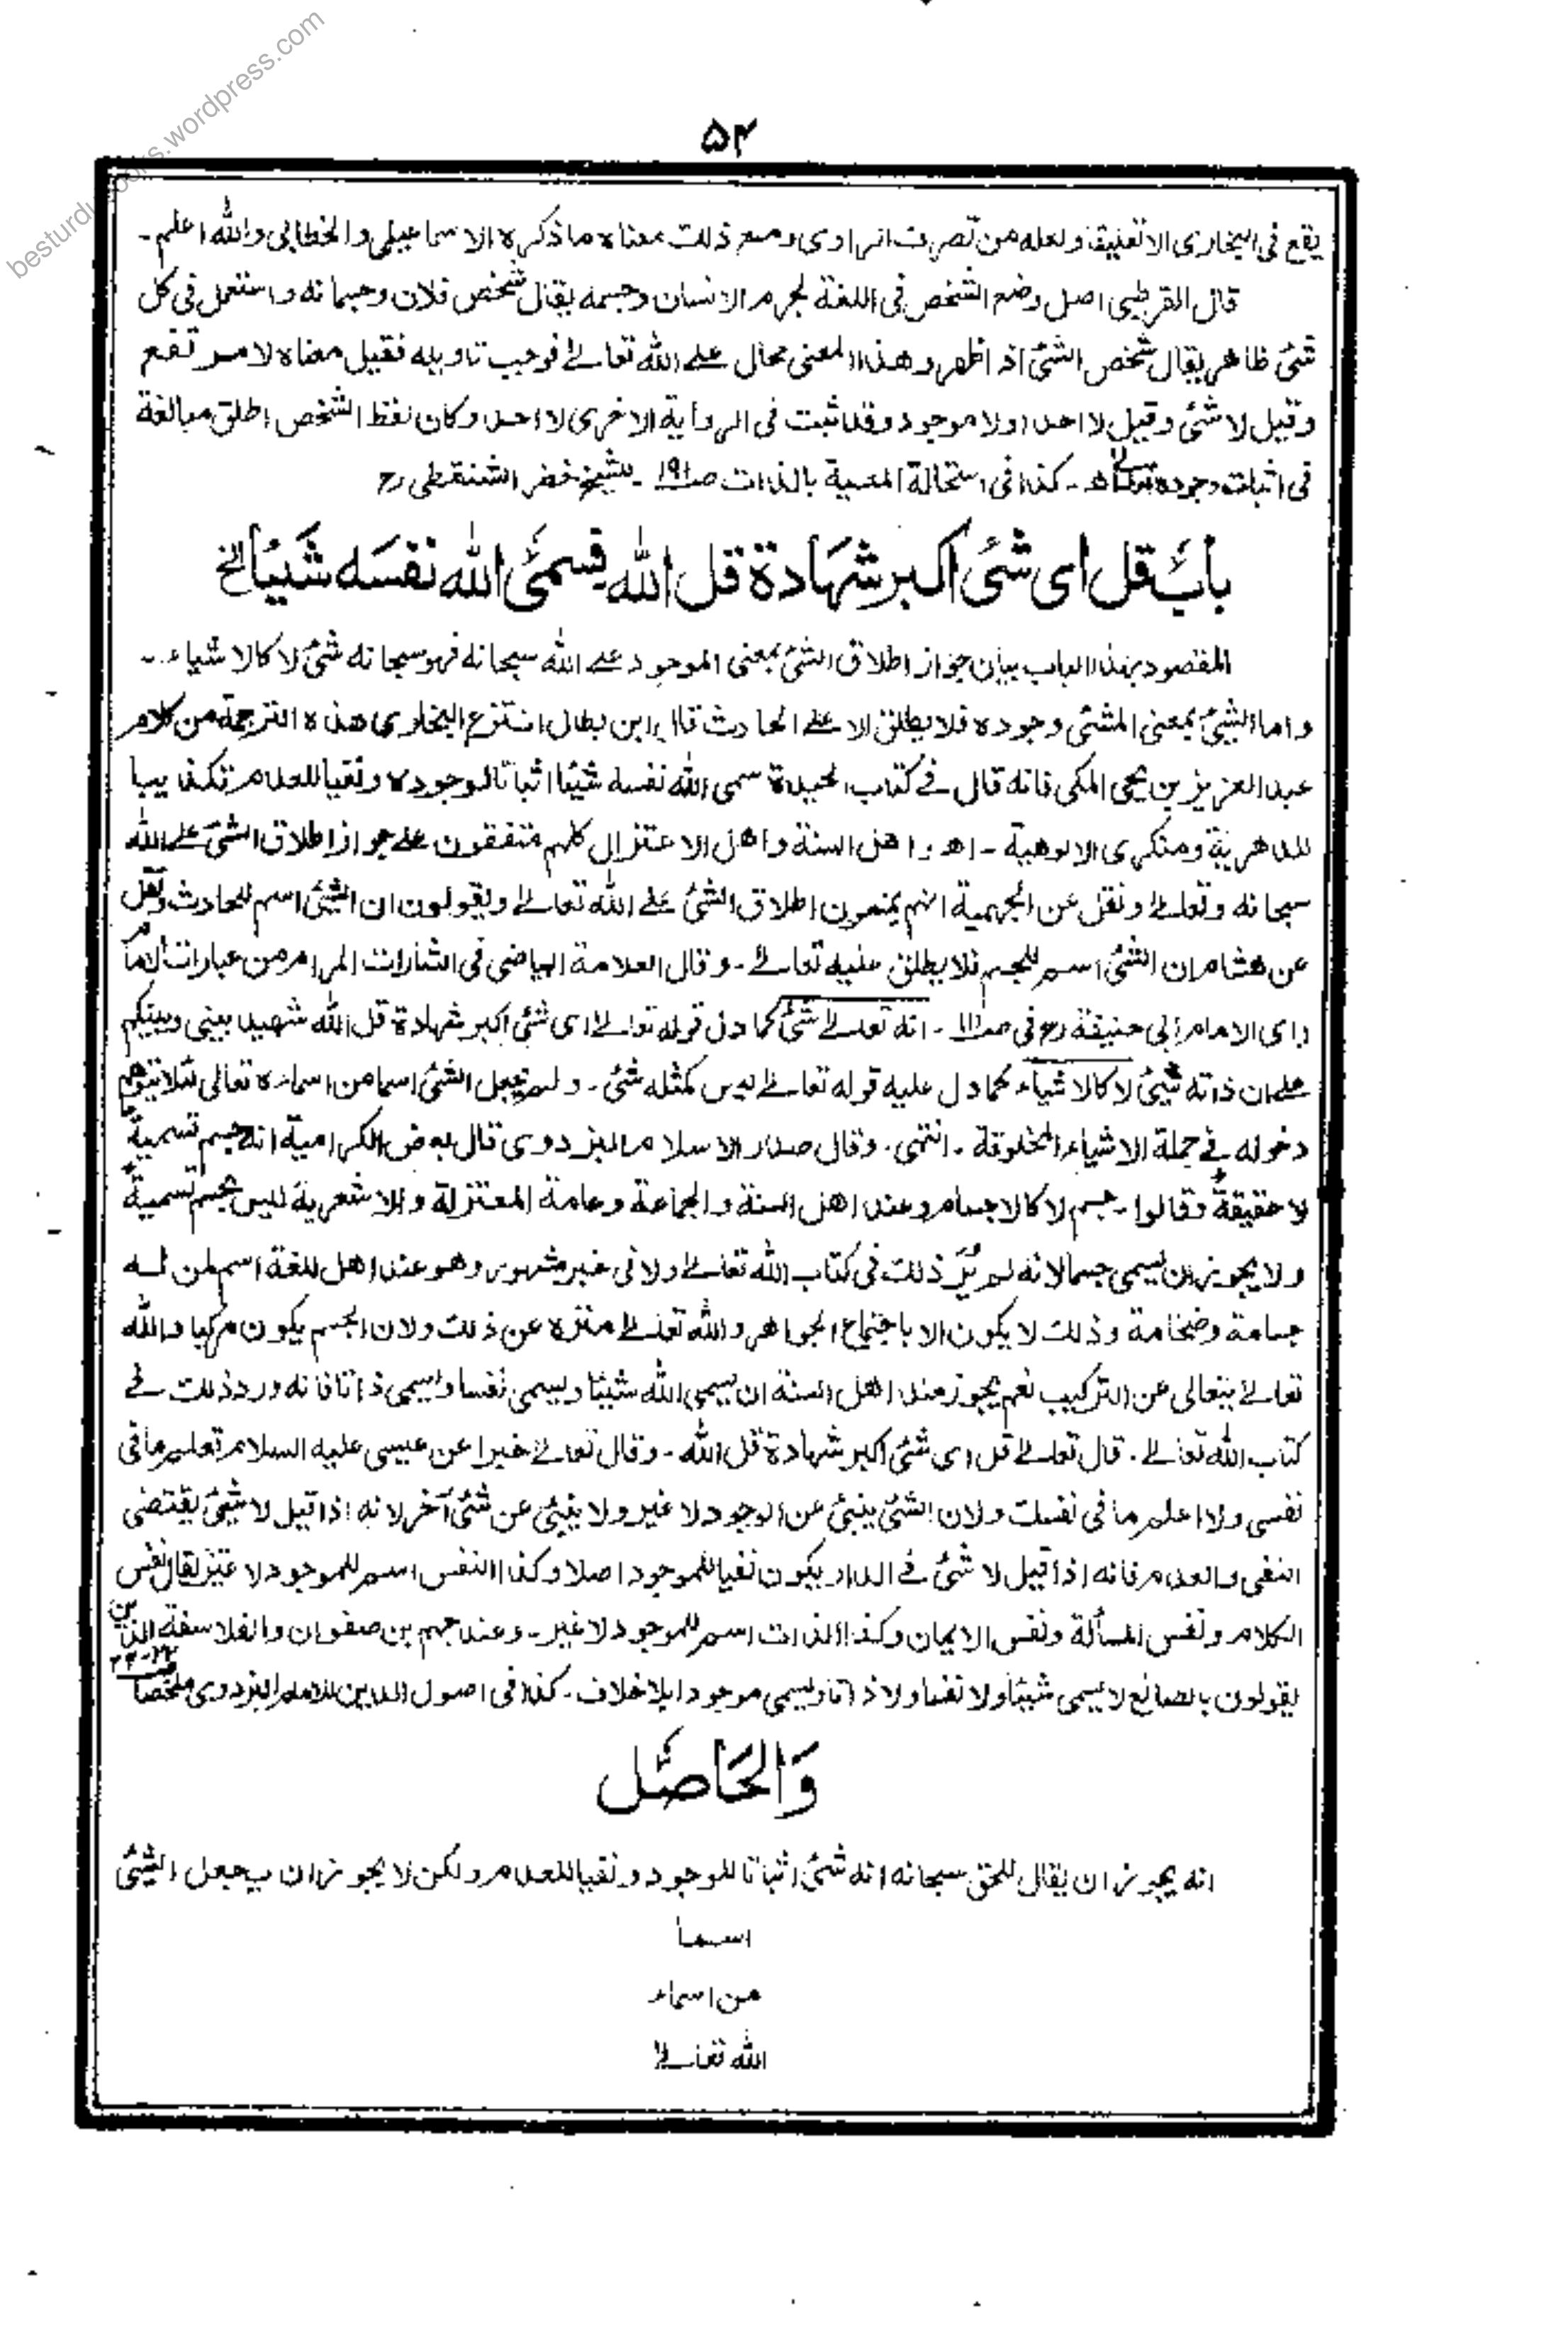 besturdubooks.wordpress.com
۵۴
يقع فى البخارى الا تعليقا ولعله من تصرف الراوى ومع ذلك معناه ما ذكره الاسماعيلى والخطابى والله اعلم۔
قال القرطبى اصل وضع الشخص فى اللغة لجرم الانسان وجسمه يقال شخص فلان وجسمانه واستعمل فى كل
شئ ظاهر يقال شخص الشئ اذا ظهر وهذا المعنى محال على الله تعالے فوجب تاويله فقيل معناه لا مرتفع
وقيل لا شئ وقيل لا احد ولا موجود وقد ثبت فى الرواية الاخرى لا احد وكان لفظ الشخص اطلق مبالغة
فى اثبات وجوده تعالى اھ۔ كذا فى استحالة المعية بالذات صـ١٩١ ۔ للشيخ خضر الشنقطى رح
باب قل اى شئ اكبر شهادة قل الله فسمى الله نفسه شيئا الخ
المقصود بهذا الباب بيان جواز اطلاق الشئ بمعنى الموجود على الله سبحانه فهو سبحانه شئ لا كالاشياء۔
واما الشيئ بمعنى المشئى وجوده فلا يطلق الا على الحادث قال ابن بطال انتزع البخارى هذه الترجمة من كلام
عبد العزيز بن يحى المكى فانه قال فے كتاب الحيدة سمى الله نفسه شيئا اثباتا لوجوده ونفيا للعدم تكذيبا
للدهرية ومنكرى الالوهية ۔ اھ واهل السنة واهل الاعتزال كلهم متفقون على جواز اطلاق الشئ على الله
سبحانه وتعالے ونقل عن الجهمية انهم يمنعون اطلاق الشئ على الله تعالے ويقولون ان الشئ اسم للحادث ونقل
عن هشام ان الشئ اسم للجسم فلا يطلق عليه تعالے۔ وقال العلامة البياضى فى اشارات المرام من عبارات الامام
راى الامام ابى حنيفة رح فى صـ ۔ انه تعالے شئ كما دل قوله تعالے اى شئ اكبر شهادة قل الله شهيد بينى وبينكم
على ان ذاته شيئ لا كالاشياء كما دل عليه قوله تعالے ليس كمثله شئ۔ ولم يجعل الشئ اسما من اسماءه تعالى لئلا يتوهم
دخوله فے جملة الاشياء المخلوقة ۔ انتهى۔ وقال صدر الاسلام البزدوى قال بعض الكرامية انه جسم تسمية
لا حقيقة وقالوا ۔ جسم لا كالاجسام وعند اهل السنة والجماعة وعامة المعتزلة والاشعرية ليس بجسم تسمية
ولا يجوز ان يسمى جسما لانه لم يرد ذلك فى كتاب الله تعالے ولا فى خبر مشهور وهو عند اهل للغة اسم لمن له
جسامة وضخامة وذلك لا يكون الا باجتماع الجواهر والله تعالے منزه عن ذلك ولان الجسم يكون مركبا والله
تعالے يتعالى عن التركيب نعم يجوز عند اهل السنة ان يسمى الله شيئا ويسمى نفسا ويسمى ذاتا فانه ورد ذلك فے
كتاب الله تعالے۔ قال تعالے قل اى شئ اكبر شهادة قل الله ۔ وقال تعالے خبرا عن عيسى عليه السلام تعلم ما فى
نفسى ولا اعلم ما فى نفسك ولان الشئ ينبئ عن الوجود لا غير ولا ينبئ عن شئ آخر لانه اذا قيل لا شيئ يقتضى
النفى والعدم فانه اذا قيل لا شئ فے الدار يكون نفيا للموجود اصلا وكذا النفس اسم للموجود لا غير يقال نفس
الكلام ونفس المسألة ونفس الايمان وكذا الذات اسم للموجود لا غير۔ وعند جهم بن صفوان والفلاسفة الذين
يقولون بالصانع لا يسمى شيئا ولا نفسا ولا ذاتا ويسمى موجودا بلا خلاف۔ كذا فى اصول الدين للامام البزدوى ملخصا
وَالحَاصَل
انه يجوز ان يقال للحق سبحانه انه شئ اثباتا للوجود ونفيا للعدم ولكن لا يجوز ان يجعل الشيئ
اسما
من اسماء
الله تعالے